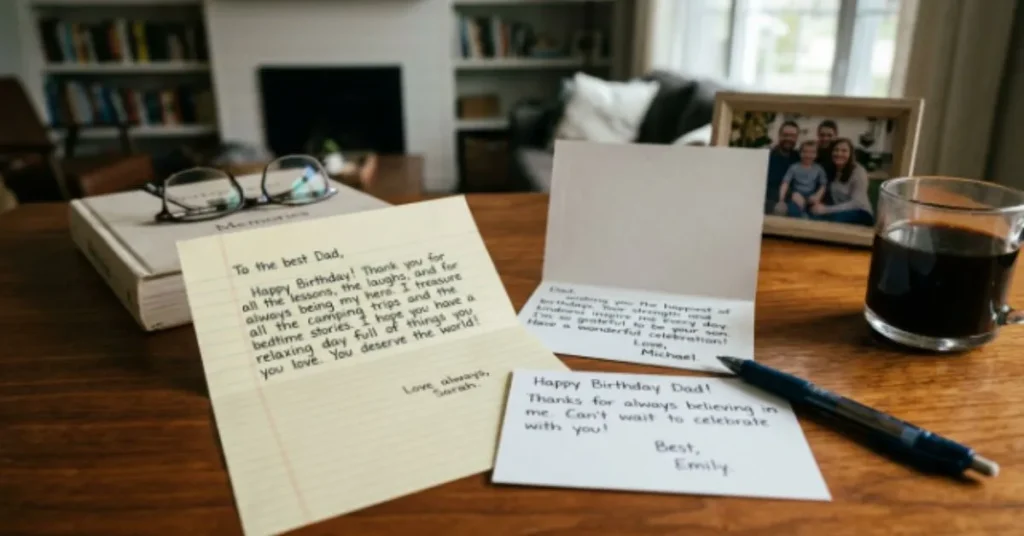 Memories
To the best Dad,
Happy Birthday! Thank you for
all the lessons, the laughs, and for
always being my hero. I treasure
all the camping trips and the
bedtime stories. I hope you have a
relaxing day full of things you
you love. You deserve the world!
Love always,
Sarah.
Dad,
wishing you the happiest of
birthdays. Your strength and
kindness inspire me every day.
I'm so grateful to be your son.
Have a wonderful celebration!
Love,
Michael.
Happy Birthday Dad!
Thanks for always believing in
me. Can't wait to celebrate
with you!
Best,
Emily.